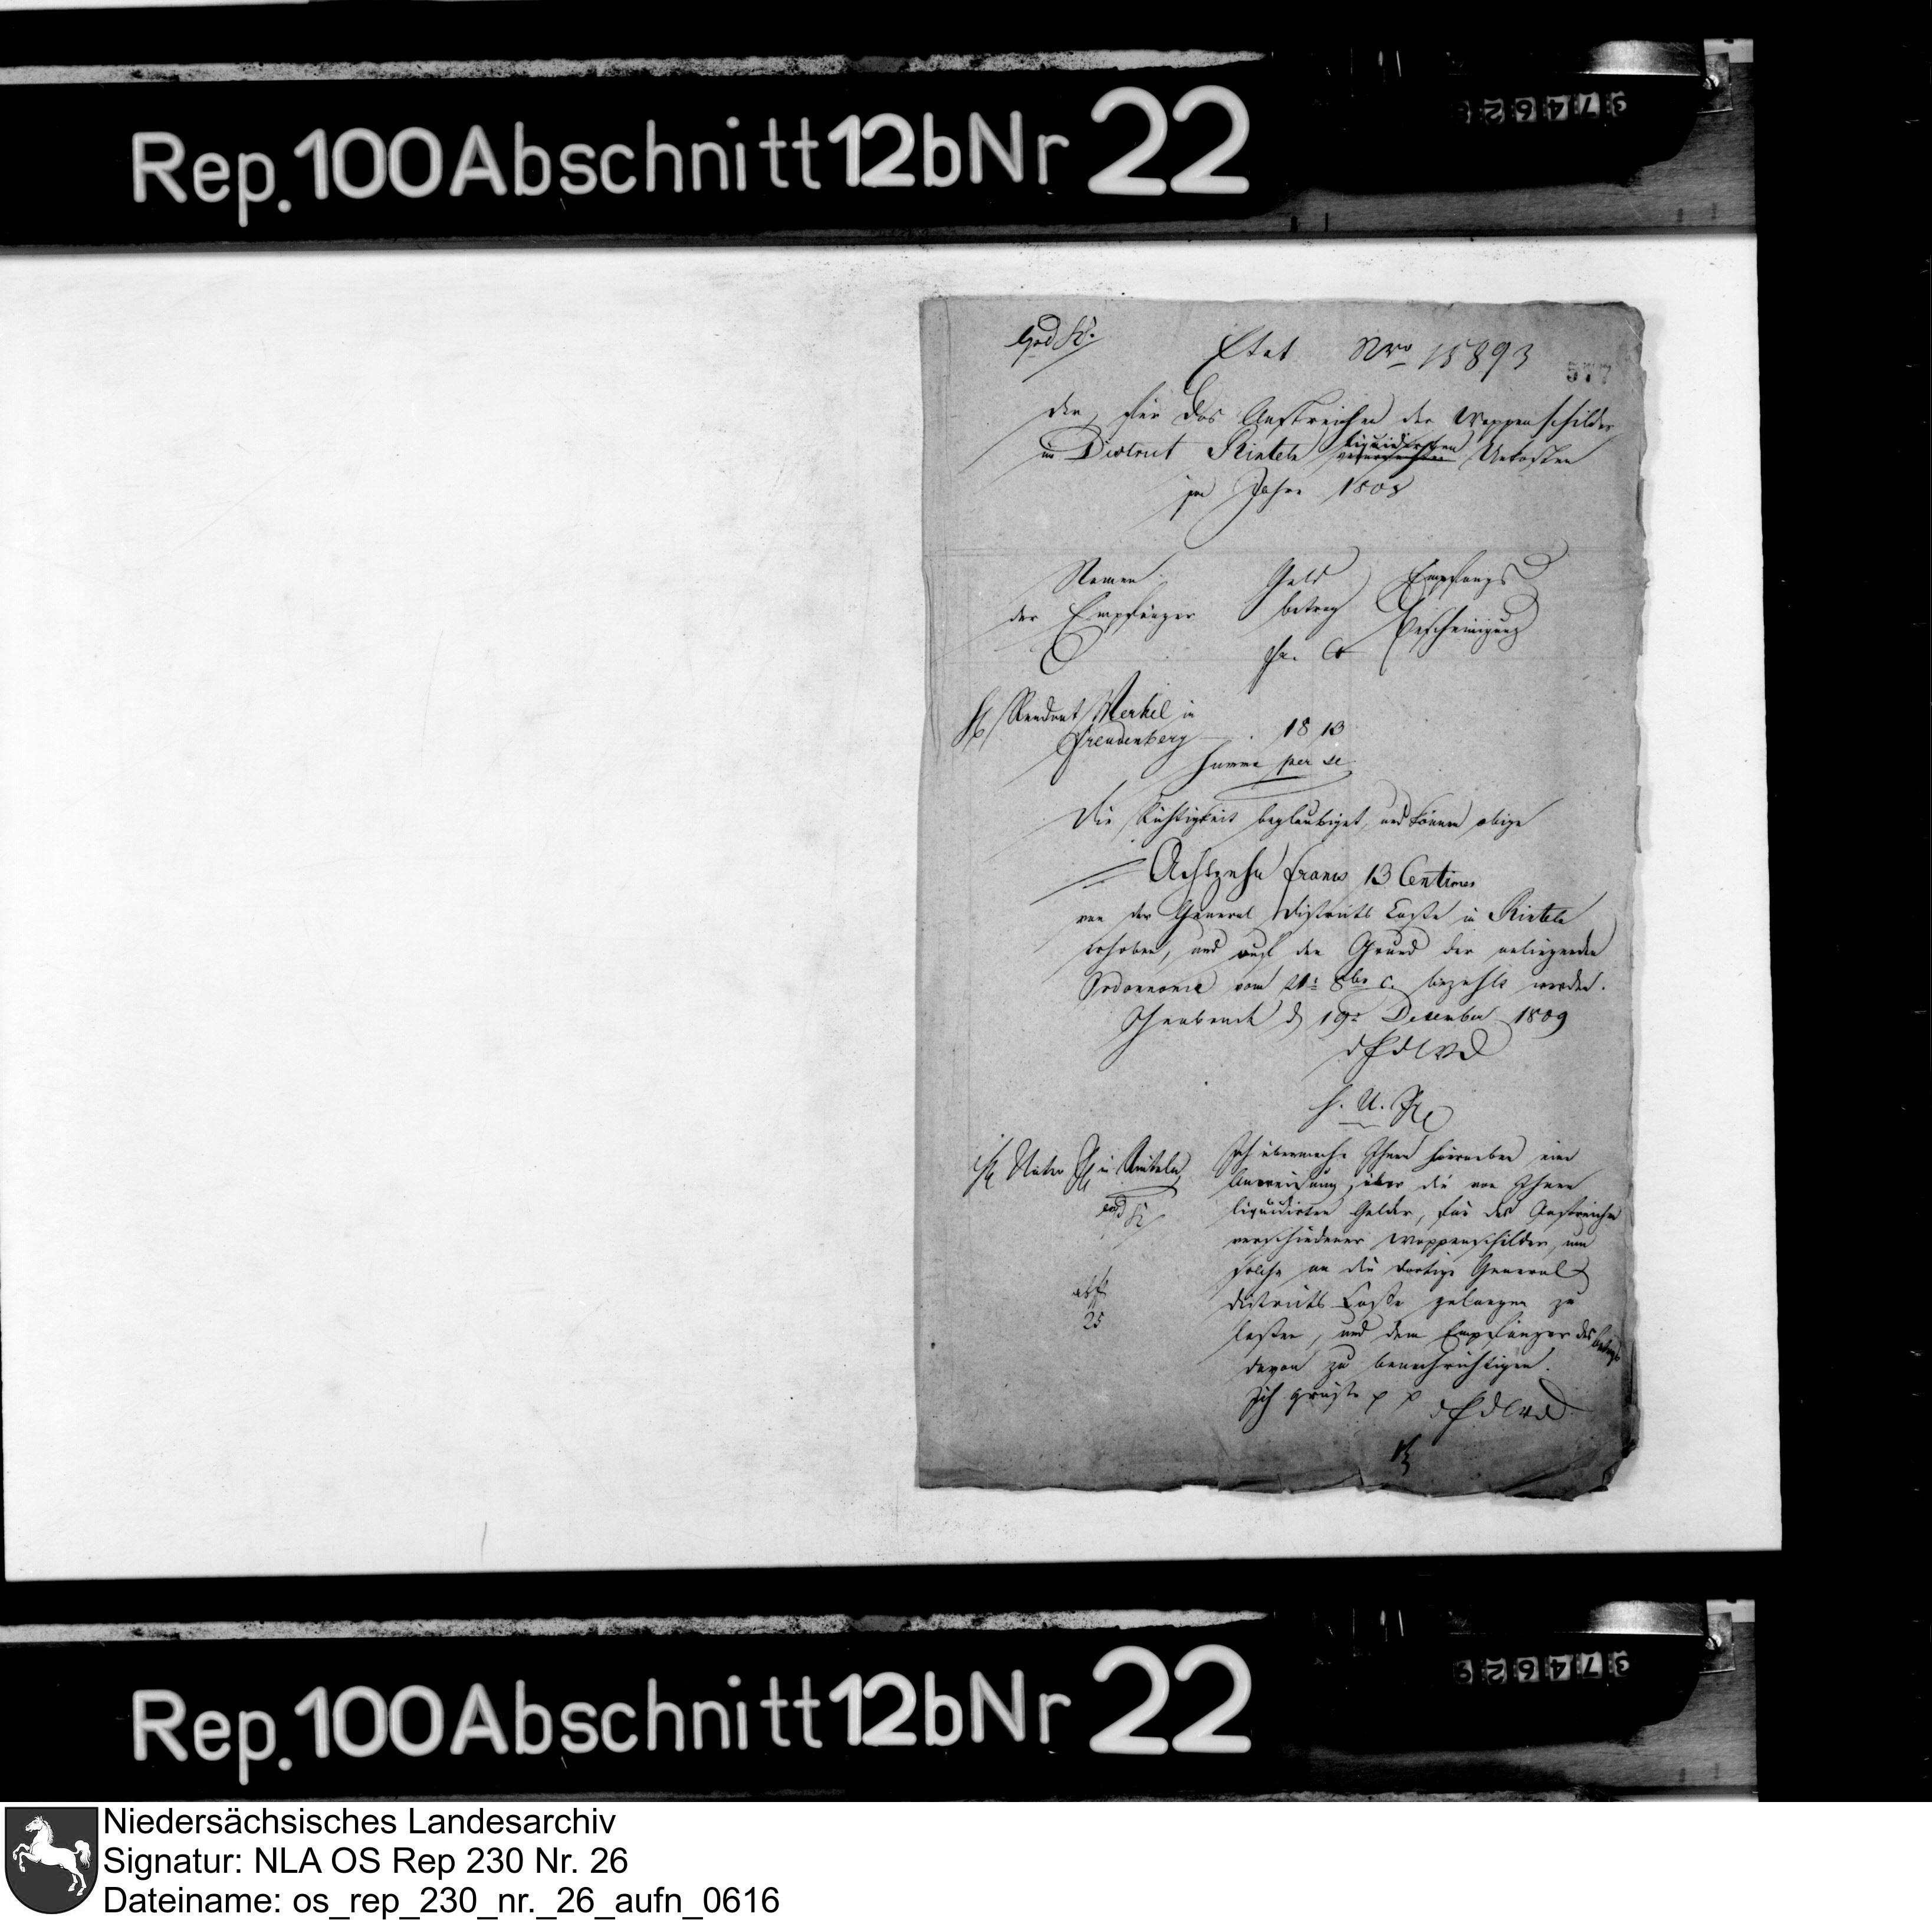 Rep. 100 Abschnitt 12b Nr 22
Etat Nro 15893
577
der, für das Anstreichen der Wappenschilder
im District Rinteln liquidirten Unkosten
pro Jahr 1808
Namen
der Empfänger
Geld
betrag
Fr. Ct
Empfangs
Bescheinigung
Rendant Merkel in
Freudenberg . 18 13
Summa per se
Die Richtigkeit beglaubiget, und können obige
Achtzehn Francs 13 Centimes
von der General Districts Casse in Rinteln
erhoben, und auf den Grund der anliegenden
Ordonnance vom 21t 8br c. bezahlt werden.
Osnabrück d 19t December 1809
dPdWD
S. U. Pr
Unter Pf in Rinteln
Ich übermache Ihnen hierneben eine
Anweisung über die von Ihnen
liquidirten Gelder, für das Anstreichen
verschiedener Wappenschilder, um
solche an die dortige General
Districts Casse gelangen zu
lassen, und dem Empfänger des Betrags
davon zu benachrichtigen.
Ich grüße p p dPdWD
25
Rep. 100 Abschnitt 12b Nr 22
Niedersächsisches Landesarchiv
Signatur: NLA OS Rep 230 Nr. 26
Dateiname: os_rep_230_nr._26_aufn_0616